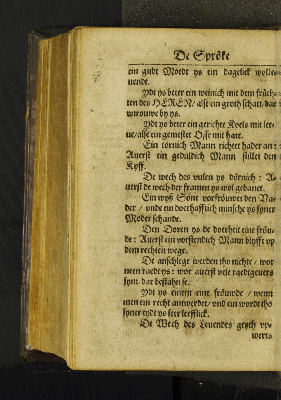 De Spröke
ein gudt Moedt ys ein dagelick wolle-
uendt.
Ydt ys beter ein weinich mit dem früch-
ten des HEREN / alse ein groth schatt / dar
vnrouwe by ys.
Ydt ys beter ein gerichte Koels mit lee-
ue / alse ein gemestet Osse mit hate.
Ein tornich Mann richtet hader an:
Auerst ein gedüldich Mann stillet den
Kyff.
De wech des vulen ys dörnich: A-
uerst de wech der framen ys wol gebanet.
Ein wyß Söne vorfröuwet den Va-
der / vnde ein dorhafftich minsche ys syner
Moder schande.
Den Doren ys de dorheit eine fröu-
de: Auerst ein vorstendich Mann blyfft vp
dem rechten wege.
De anschlege werden tho nichte / wor
neen raedt ys: wor auerst vele raedtgeuers
synt / dar bestahn se.
Ydt ys einem eine fröuwde / wenn
men em recht antwerdet / vnd ein wordt tho
syner tydt ys seer leefflick.
De Wech des Leuendes geyth vp-
werts